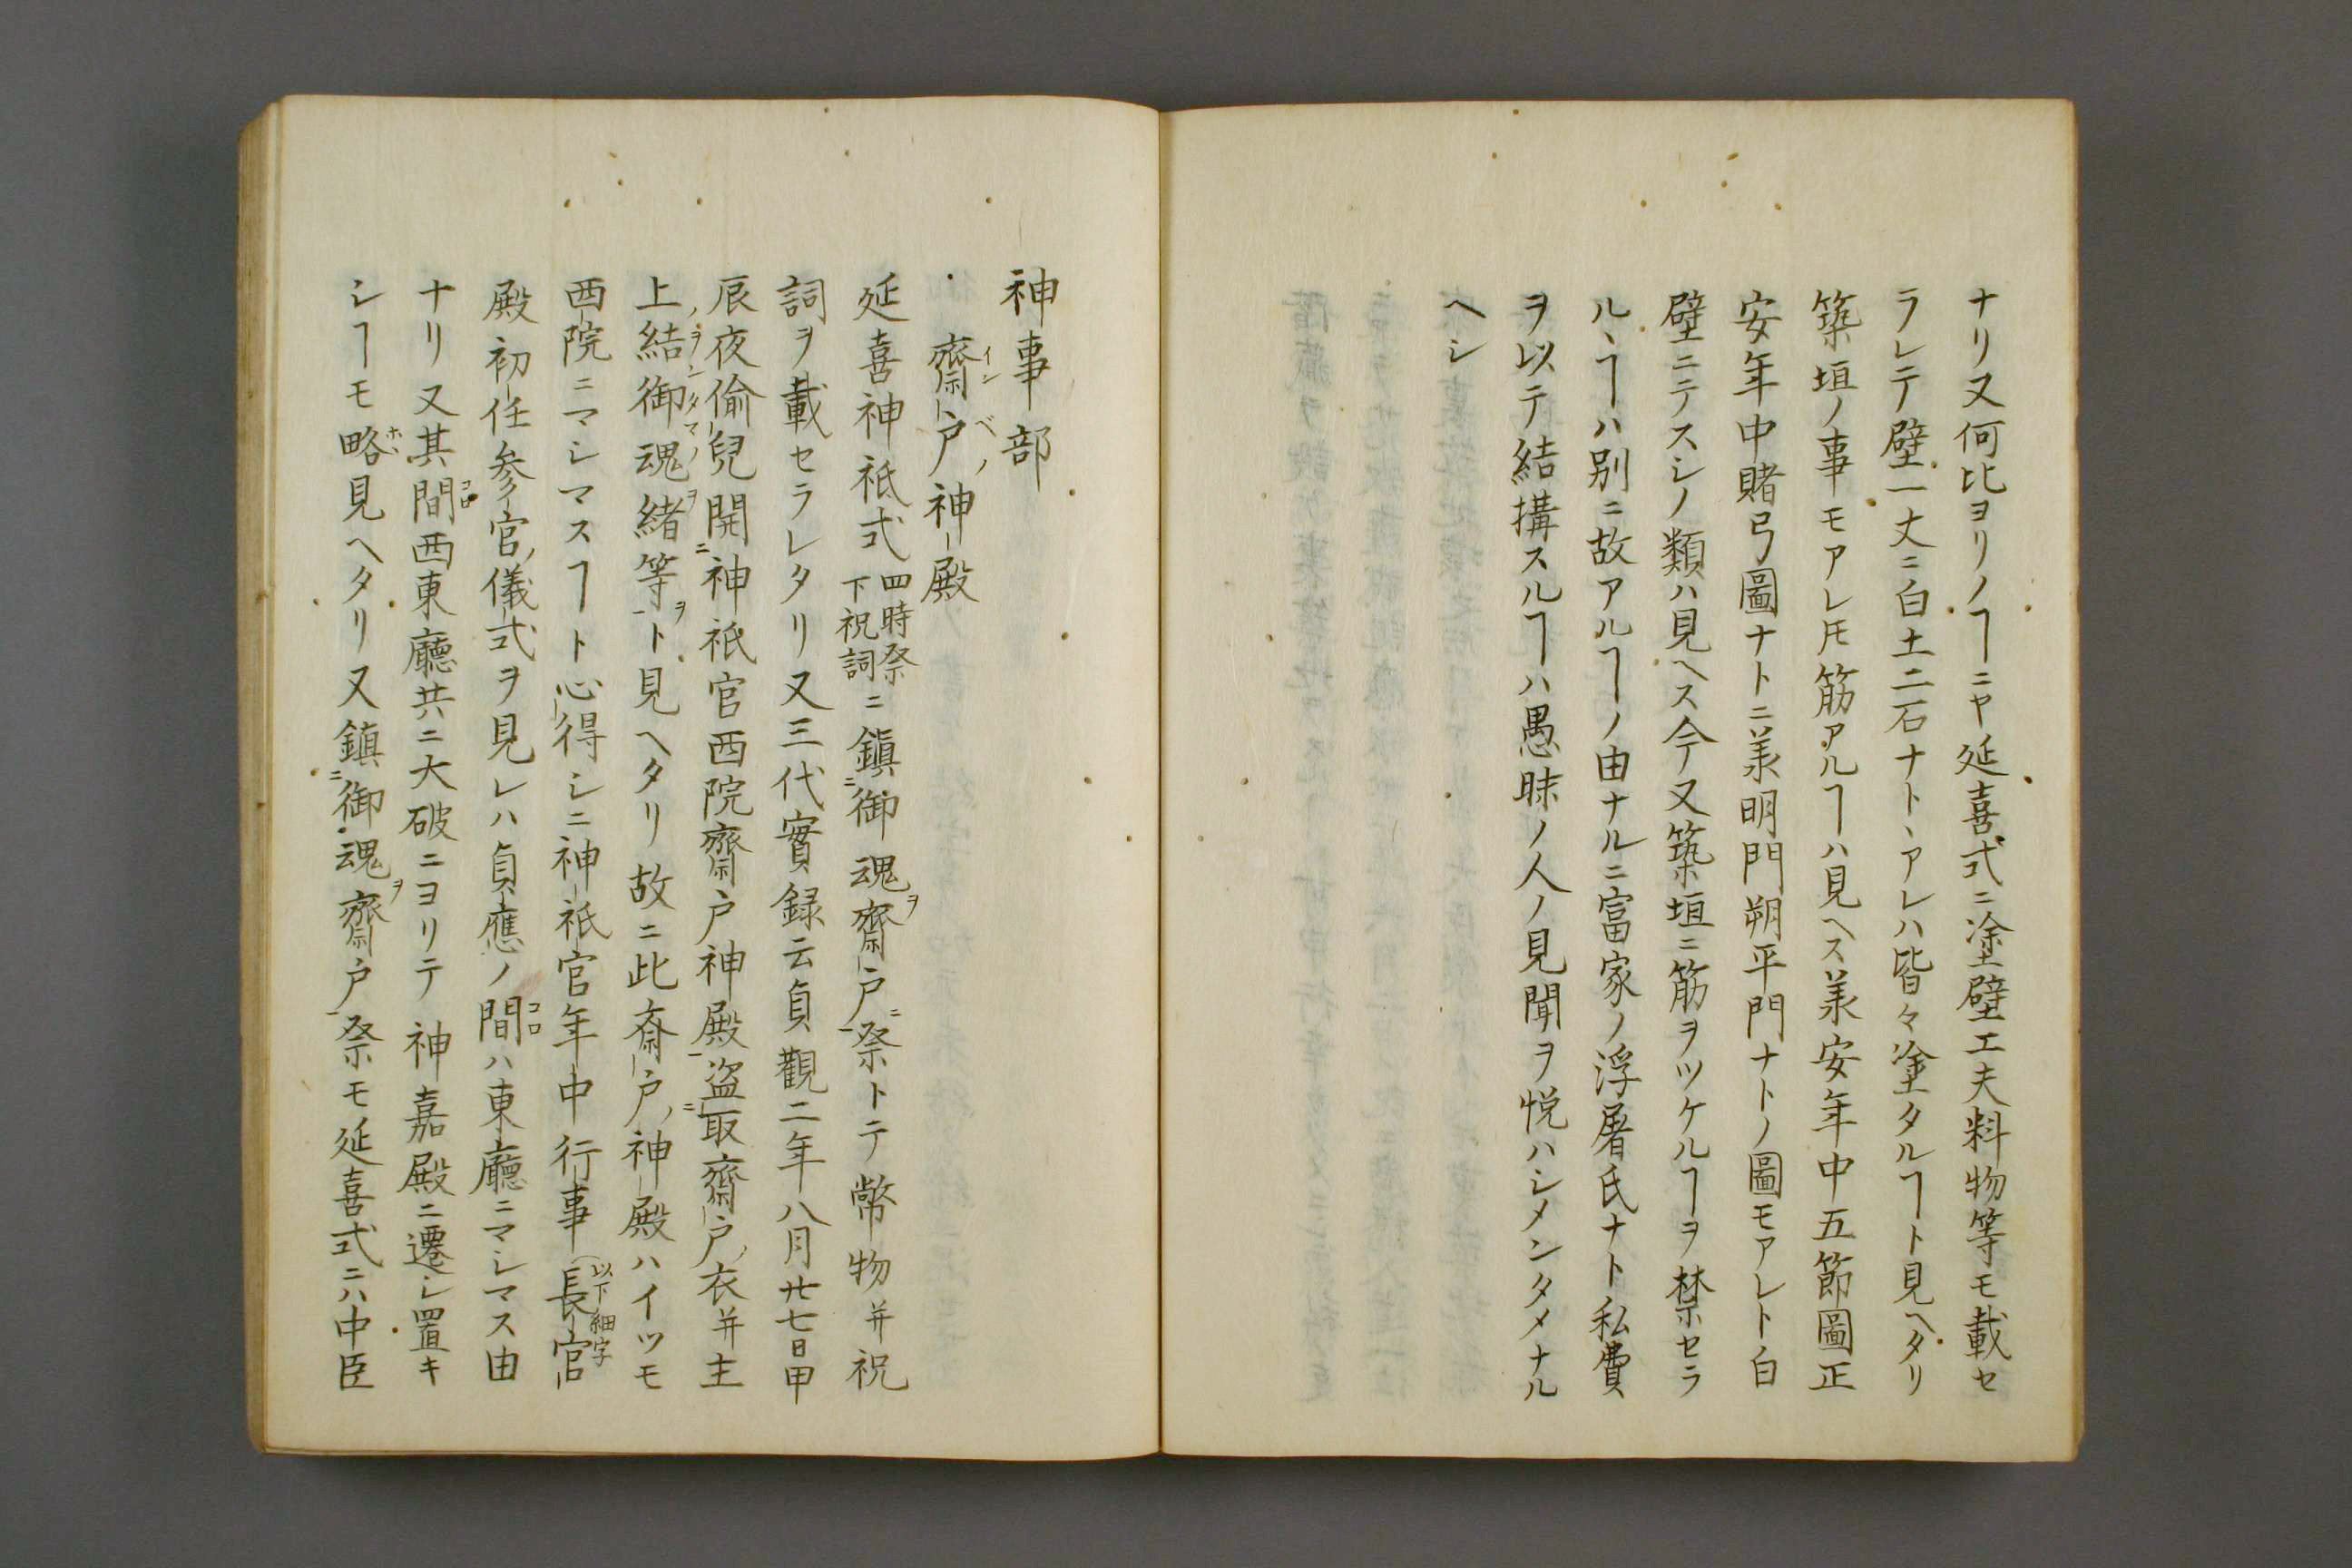 ナリ又何比ヨリノヿニヤ延喜式ニ塗壁工夫料物等モ載セ
ラレテ壁一丈ニ白土二石ナトヽアレハ皆々塗タルヿト見ヘタリ
築垣ノ事モアレ𪜈筋アルヿハ見ヘス美安年中五節圖正
安年中賭弓圖ナトニ美明門朔平門ナトノ圖モアレト白
壁ニテスシノ類ハ見ヘス今又築垣ニ筋ヲツケルヿヲ禁セラ
ルヽヿハ別ニ故アルヿノ由ナルニ富家ノ浮屠氏ナト私費
ヲ以テ結搆スルヿハ愚昧ノ人ノ見聞ヲ悦ハシメンタメナル
ヘシ
神事部
齋戸神殿
延喜神祇式四時祭下祝詞ニ鎮御魂齋戸祭トテ幣物并祝
詞ヲ載セラレタリ又三代實録云貞觀二年八月廿七日甲
辰夜偷兒開神祇官西院齋戸神殿盗取齋戸衣并主
上結御魂緒等ト見ヘタリ故ニ此斎戸神殿ハイツモ
西院ニマシマスヿト心得シニ神祇官年中行事以下細字長官
殿初任参官儀式ヲ見レハ貞應ノ間ハ東廳ニマシマス由
ナリ又其間西東廳共ニ大破ニヨリテ神嘉殿ニ遷シ置キ
シヿモ略見ヘタリ又鎮御魂齋戸祭モ延喜式ニハ中臣